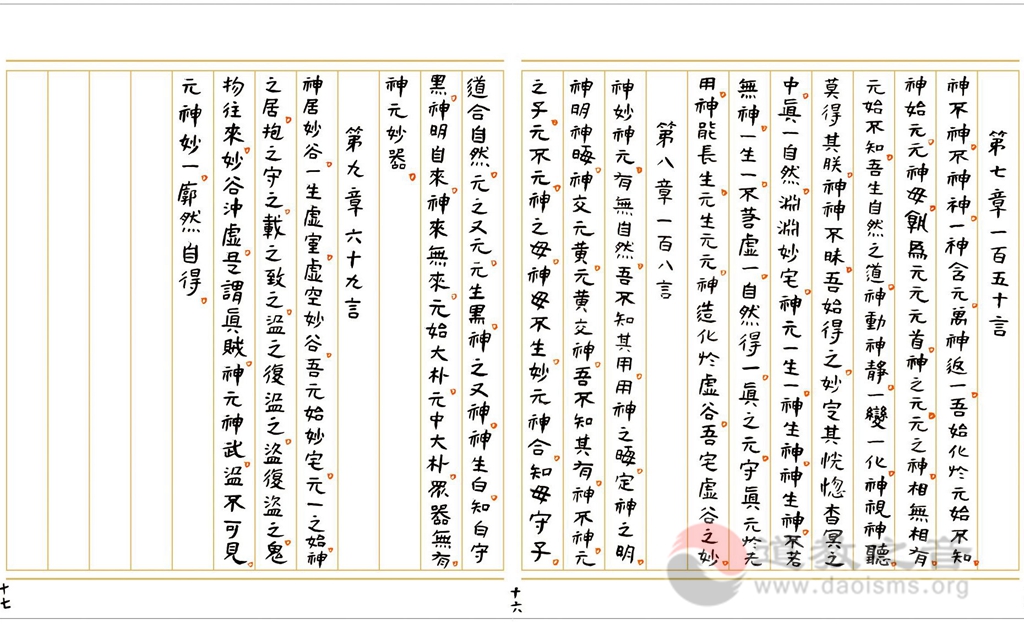 第七章一百五十言
神不神。不神神。一神含元。萬神返一。吾始化於元始。不知
神始元。元神母。孰爲元。元元首。神之元。元之神。相無相有
元始不知。吾生自然之道。神動神靜。一變一化。神視神聽。
莫得其朕。神神不昧。吾始得之。妙定其恍惚。杳冥之
中。眞一自然。淵淵妙宅。神元一生一。神生神。神生神。不若
無神。一生一。不若虛一。自然得一。眞之元。守眞元。於无
用。神能長生元。元生元。元神造化於虛谷。吾宅虛谷之妙。
第八章一百八言
神妙神元。有無自然。吾不知其用。用神之晦。定神之明。
神明神晦。神交元黃。元黃交神。吾不知其有。神不神。元
之子。元不元。神之母。神母不生。妙元神合。知母守子。
十六
道合自然。元之又元。元生黑。神之又神。神生白。知白守
黑。神明自來。神來無來。元始大朴。元中大朴。眾器無有。
神元妙器。
第九章六十九言
神居妙谷。一生虛室。虛空妙谷。吾元始妙宅。元一之始。神
之居。抱之守之。載之致之。盜之復盜之。盜復盜之。鬼
物往來。妙谷沖虛。是謂眞賊。神元神武。盜不可見。
元神妙一。廓然自得。
十七
道教之音
www.daoisms.org